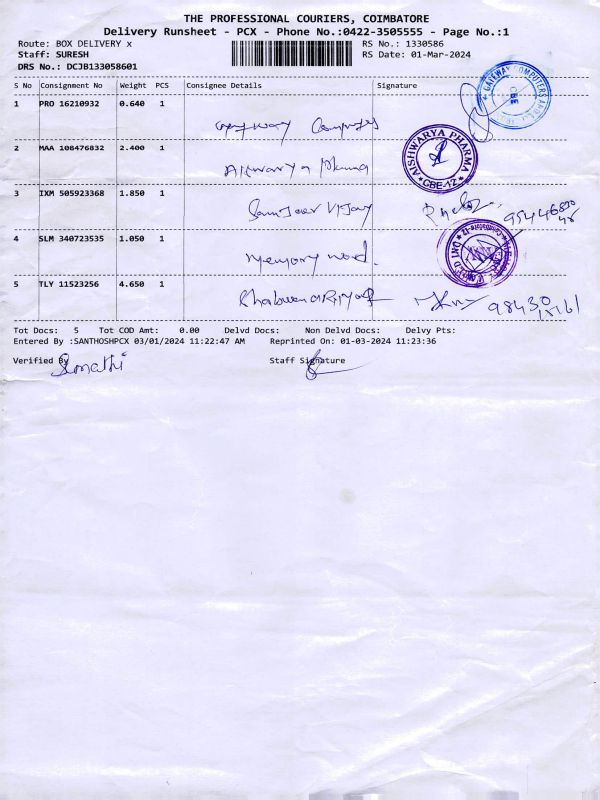 THE PROFESSIONAL COURIERS, COIMBATORE
Delivery Runsheet - PCX - Phone No.:0422-3505555 - Page No.:1
Route: BOX DELIVERY x RS No.: 1330586
Staff: SURESH RS Date: 01-Mar-2024
DRS No.: DCJB133058601
S No Consignment No Weight PCS Consignee Details Signature
GATEWAY COMPUTERS CBE
1 PRO 16210932 0.640 1
2 MAA 108476832 2.400 1
AISHWARYA PHARMA
CBE-12
3 IXM 505923368 1.850 1
4 SLM 340723535 1.050 1
Memory
5 TLY 11523256 4.650 1
98430
Tot Docs: 5 Tot COD Amt: 0.00 Delvd Docs: Non Delvd Docs: Delvy Pts:
Entered By :SANTHOSHPCX 03/01/2024 11:22:47 AM Reprinted On: 01-03-2024 11:23:36
Verified By Staff Signature
Sumathi